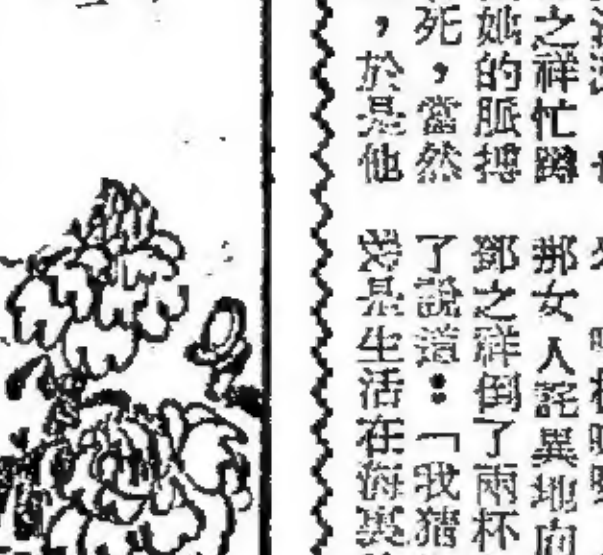 之祥忙蹲
她的脈搏
死，當然
，於是他
那女人詫異地向
鄧之祥倒了兩杯
了說道：「我猜
是生活在海裏